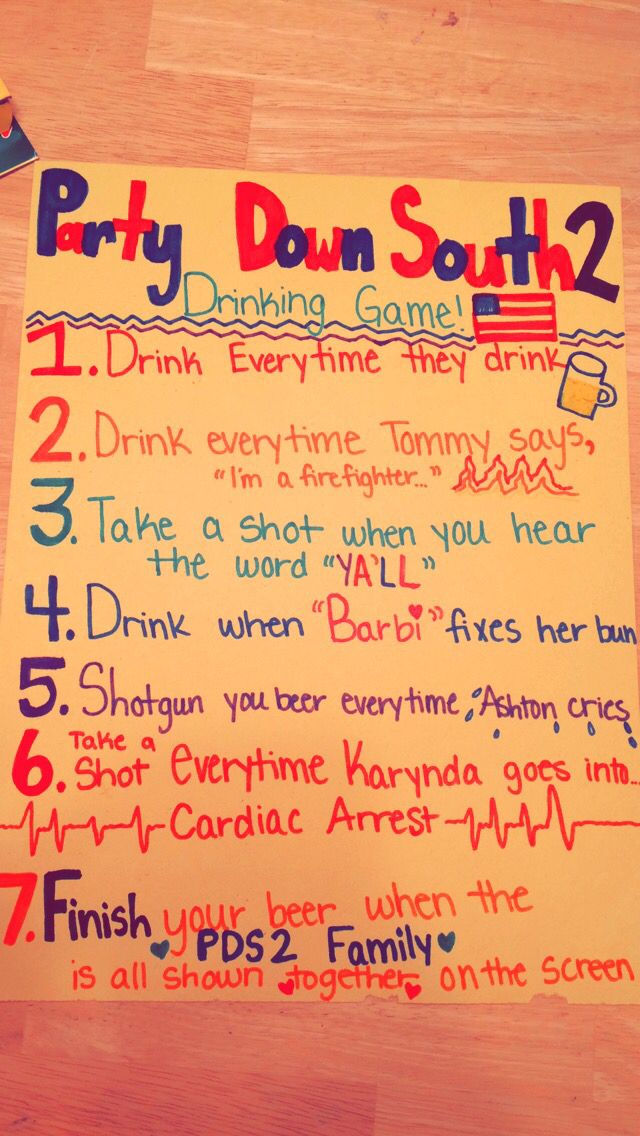 Party Down South 2
Drinking Game!
1. Drink Everytime they drink
2. Drink everytime Tommy says,
"I'm a firefighter..."
3. Take a shot when you hear
the word "YA'LL"
4. Drink when "Barbi" fixes her bun
5. Shotgun you beer everytime Ashton cries
6. Take a
Shot everytime Karynda goes into...
Cardiac Arrest
7. Finish your beer when the
PDS2 Family
is all shown together on the screen